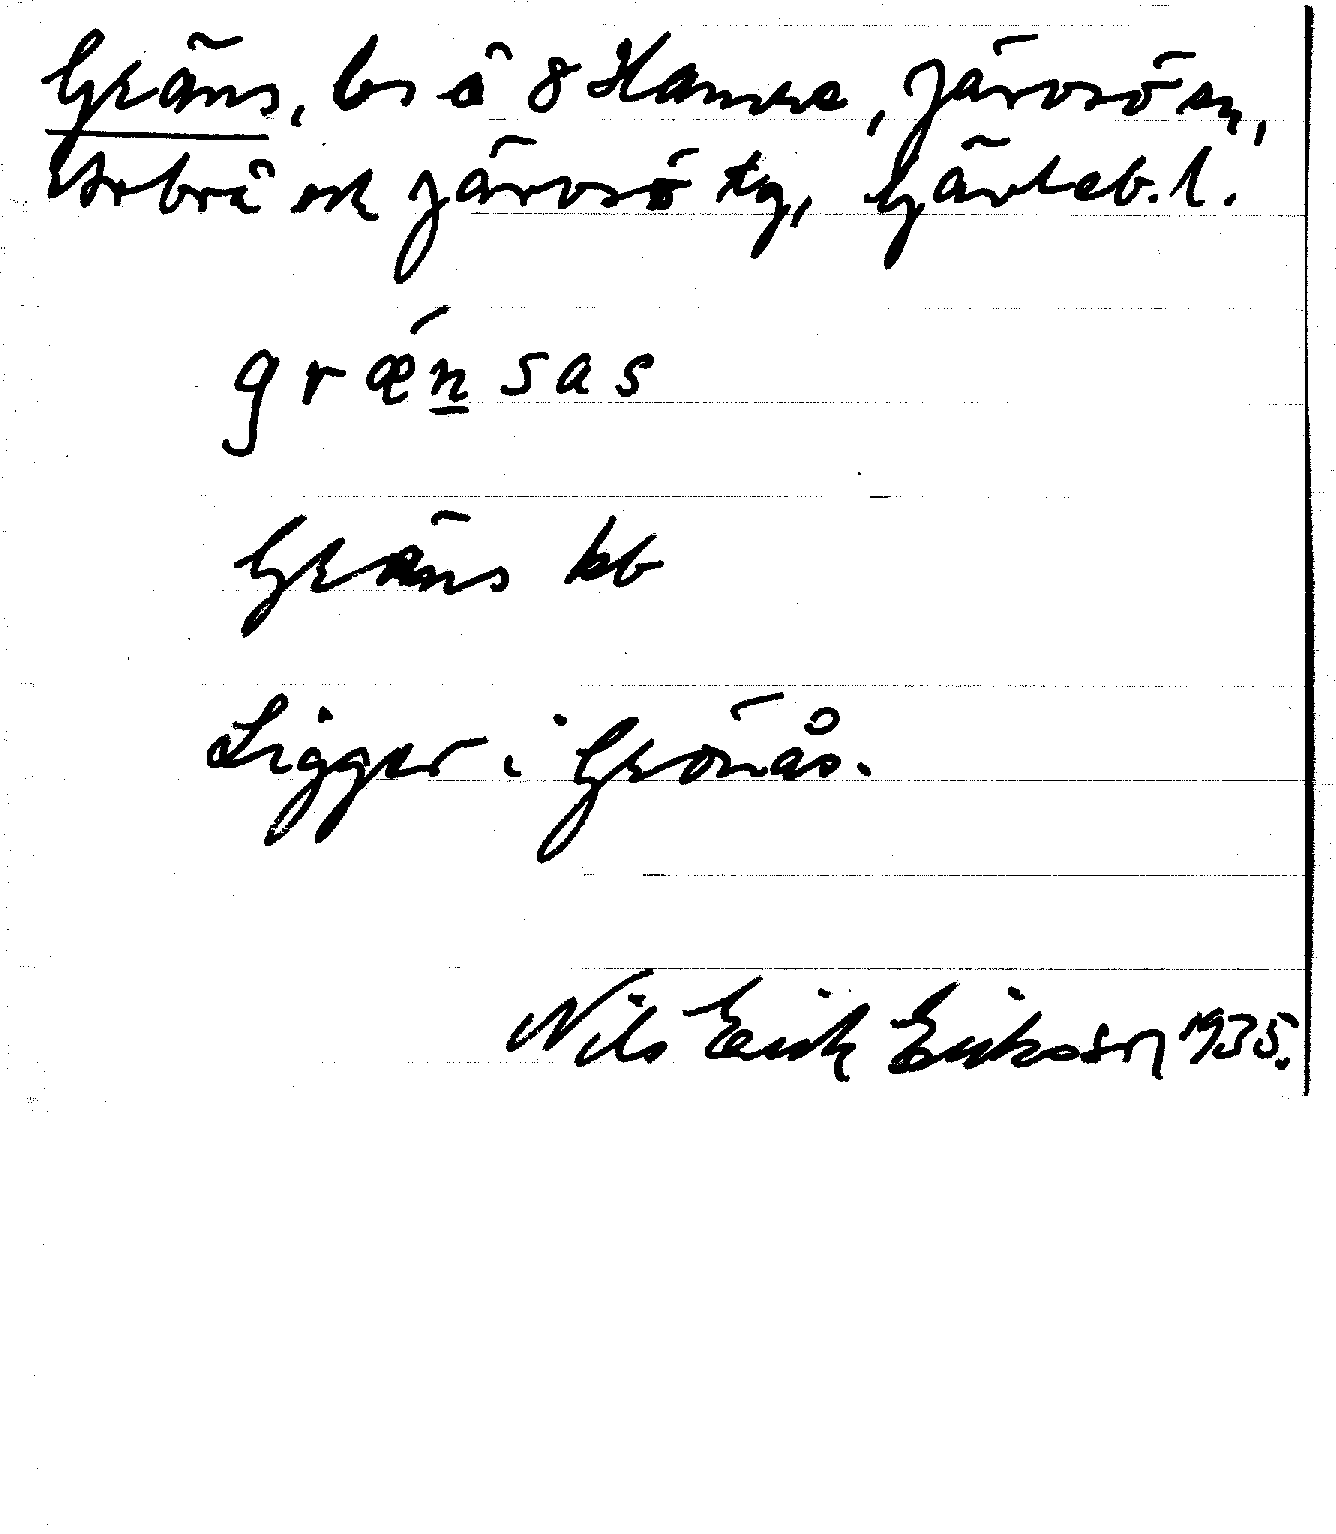 Gräns, bs å 8 Hamre, Järvsö sn,
Arbrå och Järvsö tg, Gävleb. l.
græ´n̲sas
Gräns kb
Ligger i Grönås.
Nils Erik Eriksson 1935.